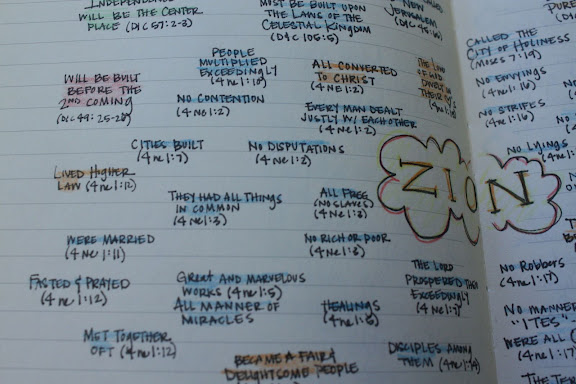 INDEPENDENCE
WILL BE THE CENTER
PLACE (D&C 57:2-3)
MUST BE BUILT UPON
THE LAWS OF THE
CELESTIAL KINGDOM
(D&C 105:5)
NEW
JERUSALEM
(D&C 45:66)
WILL BE BUILT
BEFORE THE
2ND COMING
PEOPLE
MULTIPLIED
EXCEEDINGLY
(4 ne 1:10)
NO CONTENTION
(4 ne 1:2)
ALL CONVERTED
TO CHRIST
(4 ne 1:2)
THE LOVE
OF GOD
EVERY MAN DEALT
JUSTLY W/ EACH OTHER
(4 ne 1:2)
CITIES BUILT
(4 ne 1:7)
NO DISPUTATIONS
(4 ne 1:2)
LIVED HIGHER
LAW (4 ne 1:12)
THEY HAD ALL THINGS
IN COMMON
(4 ne 1:3)
ALL FREE
(NO SLAVES)
(4 ne 1:3)
WERE MARRIED
(4 ne 1:11)
NO RICH OR POOR
(4 ne 1:3)
FASTED & PRAYED
(4 ne 1:12)
GREAT AND MARVELOUS
WORKS (4 ne 1:5)
ALL MANNER OF
MIRACLES
HEALINGS
(4 ne 1:5)
THE LORD
PROSPERED THEM
EXCEEDINGLY
(4 ne 1:7)
MET TOGETHER
OFT (4 ne 1:12)
BECAME A FAIR &
DELIGHTSOME PEOPLE
DISCIPLES AMONG
THEM (4 ne 1:14)
ZION
CALLED THE
CITY OF HOLINESS
(MOSES 7:19)
NO ENVYINGS
(4 ne 1:16)
NO STRIFES
(4 ne 1:16)
NO LYINGS
NO ROBBERS
(4 ne 1:17)
NO MANNER
"ITES"
WERE ALL